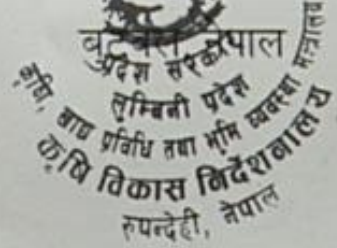 बुटवल, नेपाल
प्रदेश सरकार
लुम्बिनी प्रदेश
कृषि, खाद्य प्रविधि तथा भूमि व्यवस्था मन्त्रालय
कृषि विकास निर्देशनालय
रुपन्देही, नेपाल